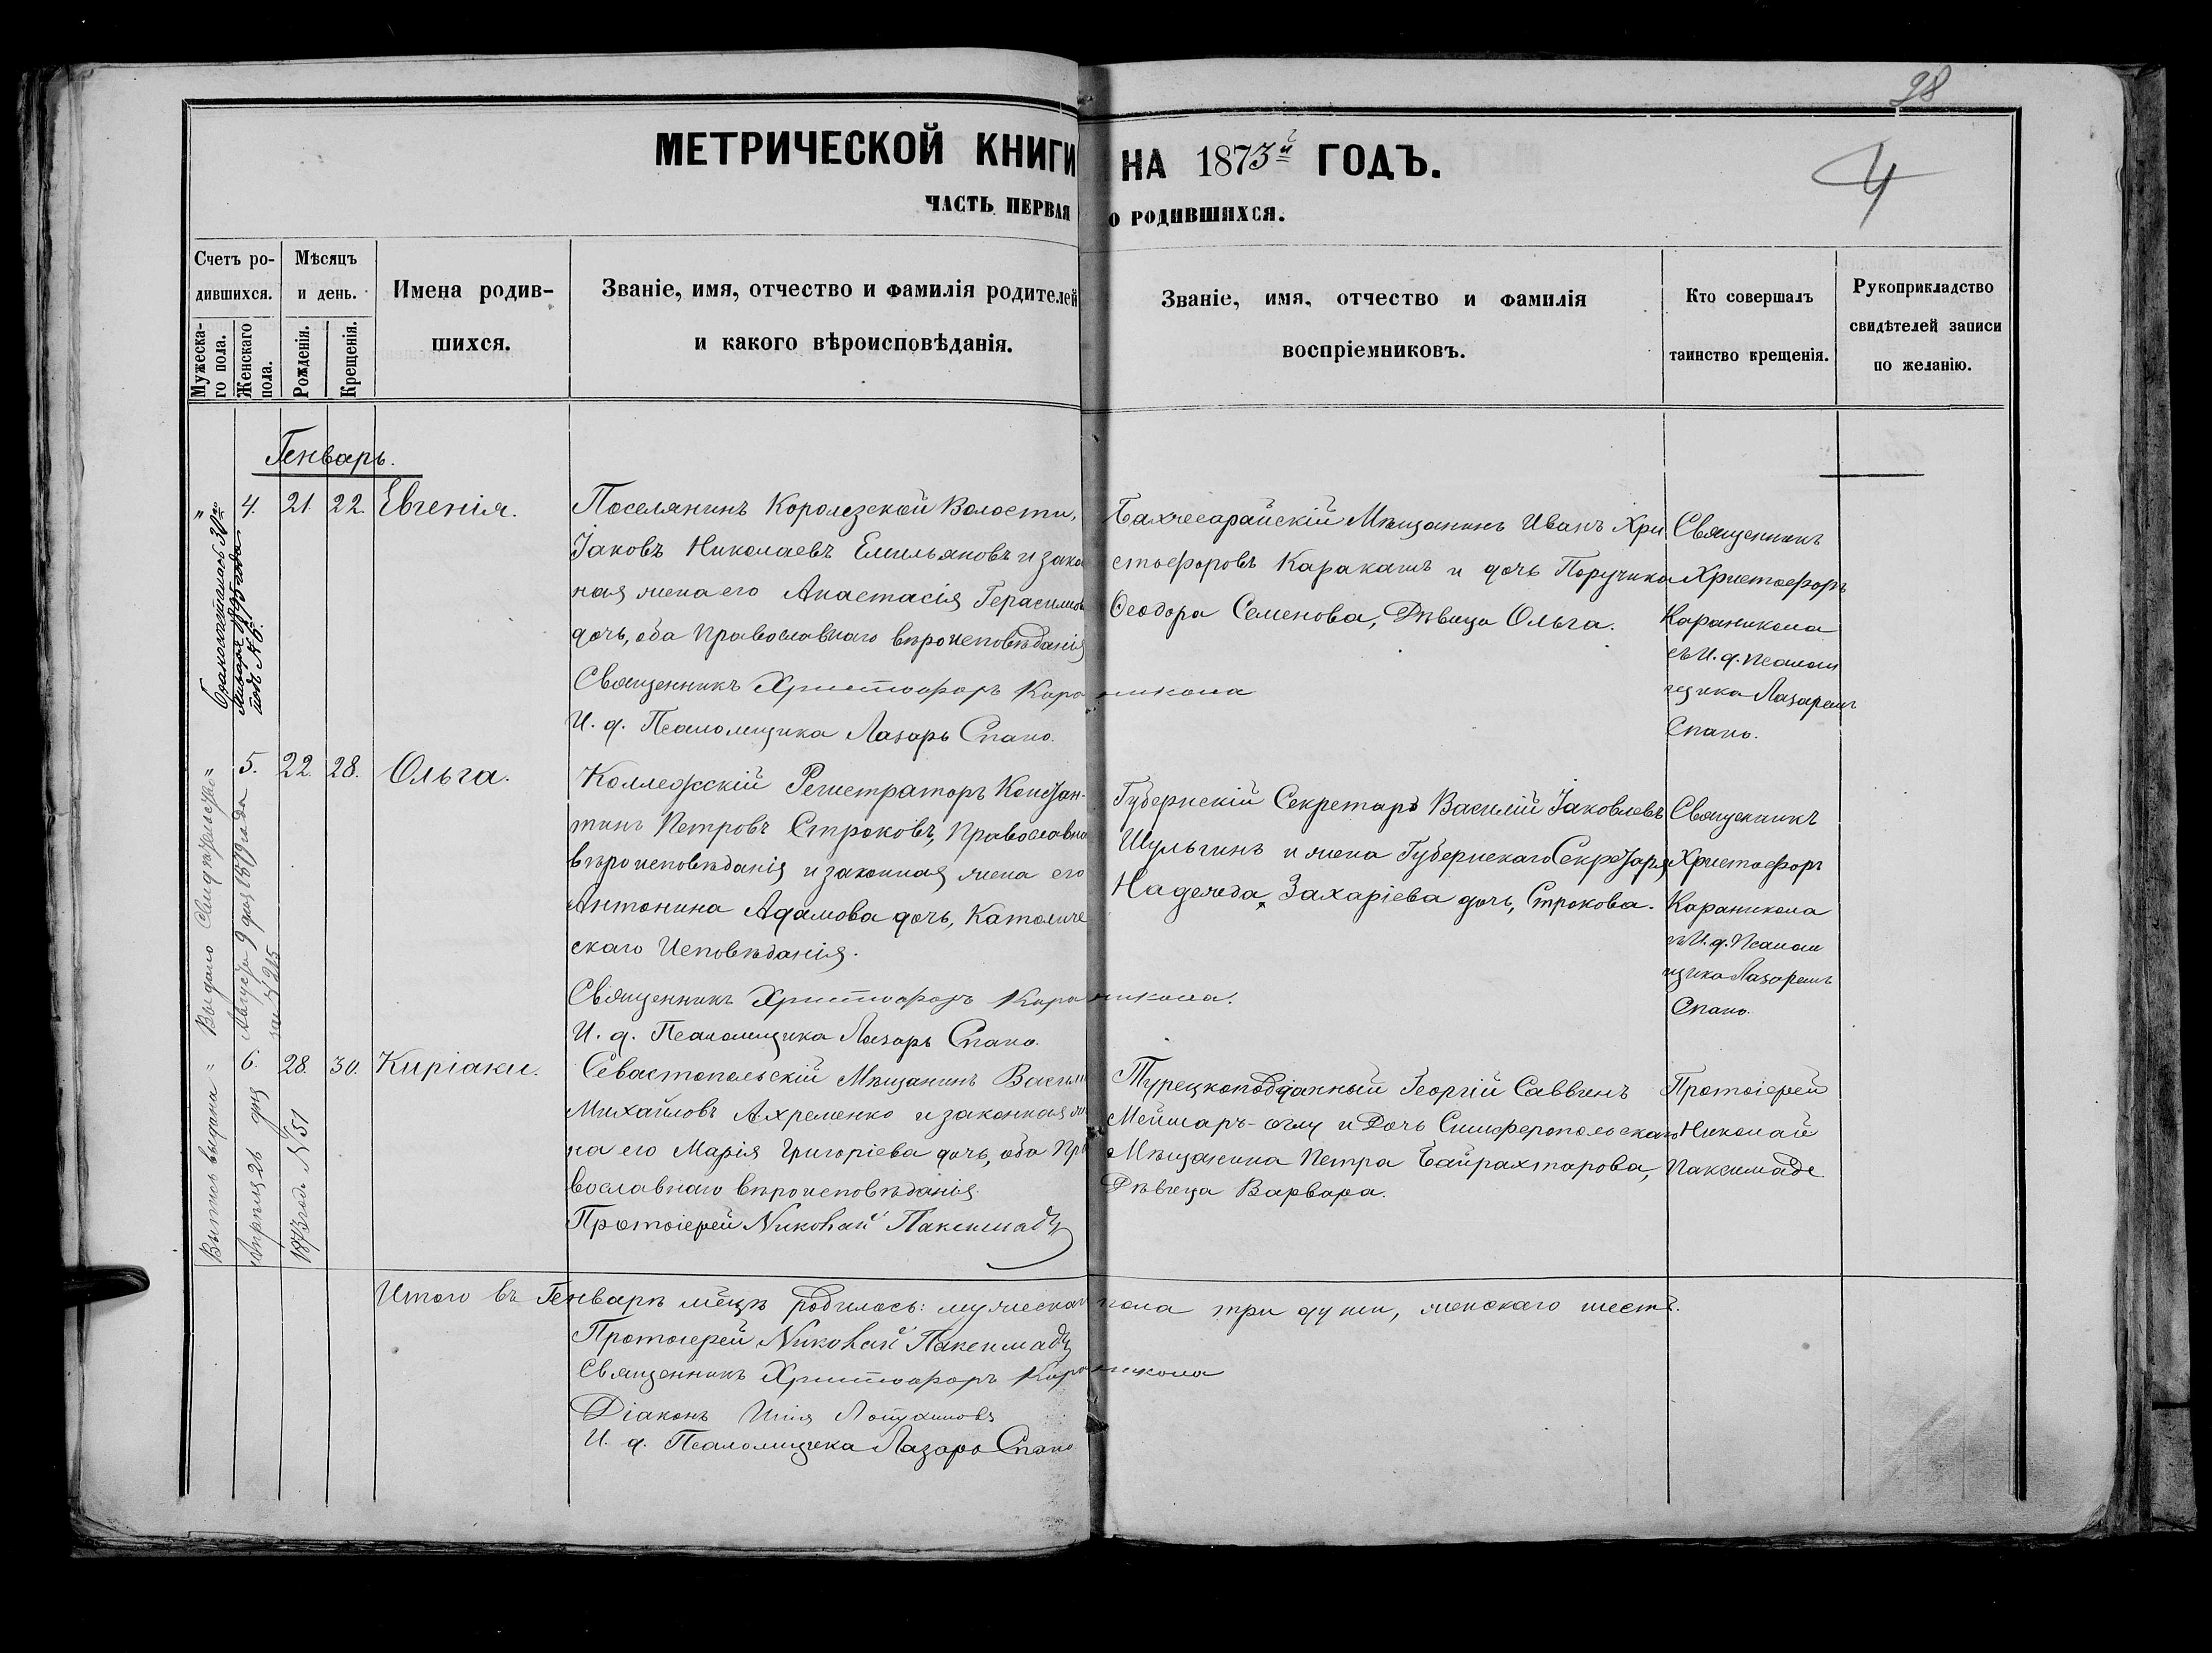 98
4
МЕТРИЧЕСКОЙ КНИГИ НА 1873й ГОДЪ.
ЧАСТЬ ПЕРВАЯ О РОДИВШИХСЯ.
Счетъ ро-
дившихся.
Мужеска-
го пола.
Женскаго
пола.
Мѣсяцъ
и день.
Рожденія.
Крещенія.
Имена родив-
шихся.
Званіе, имя, отчество и фамилія родителей
и какого вѣроисповѣданія.
Званіе, имя, отчество и фамилія
воспріемниковъ.
Кто совершалъ
таинство крещенія.
Рукоприкладство
свидѣтелей записи
по желанію.
Генварь.
" 4. 21. 22. Евгенія.
Бракосочеталась 30го
Января 1895 года
подъ № 6.
Поселянинъ Королезской Волости,
Іаковъ Николаевъ Емельяновъ и зако
ная жена его Анастасія Герасимов
дочь, оба Православнаго вѣроисповѣданія
Священникъ Христофоръ Караникола
И. д. Псаломщика Лазарь Спано.
Бахчесарайскій Мѣщанинъ Иванъ Хри
стофоровъ Каракашъ и дочь Поручика
Ѳеодора Семенова, Дѣвица Ольга.
Священникъ
Христофоръ
Караникола
съ И. д. Псалом
щика Лазаремъ
Спано.
" 5. 22. 28. Ольга.
Выдано Свидѣтельство
Августа 9 дня 1879 года
за № 215
Коллежскій Регистраторъ Констан-
тинъ Петровъ Строковъ, Православна
вѣроисповѣданія и законная жена его
Антонина Адамова дочь, Католиче
скаго Исповѣданія.
Священникъ Христофоръ Караникола.
И. д. Псаломщика Лазарь Спано.
Губернскій Секретарь Василій Іаковлевъ
Шульгинъ и жена Губернскаго Секретаря
Надежда Захаріева дочь, Строкова.
Священникъ
Христофоръ
Караникола
съ И. д. Псалом
щика Лазаремъ
Спано.
" 6. 28. 30. Киріаки.
Выпись выдана
Апрѣля 26 дня
1873 года № 51
Севастопольскій Мѣщанинъ Васил
Михайловъ Ахременко и законная же
на его Марія Григоріева дочь, оба Пра
вославнаго вѣроисповѣданія.
Протоіерей Николай Паксимади
Турецкоподданный Георгій Саввинъ
Меймаръ-оглу и Дочь Симферопольскаго
Мѣщанина Петра Байрахтарова,
Дѣвица Варвара.
Протоіерей
Николай
Паксимаде
Итого въ Генварѣ мѣцѣ родилось: мужескаго пола три души, женскаго шесть.
Протоіерей Николай Паксимади
Священникъ Христофоръ Караникола
Діаконъ Илія
И. д. Псаломщика Лазарь Спано